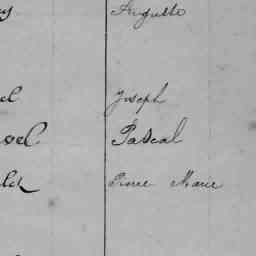 Auguste
el Joseph
oel Pascal
Pierre Marie